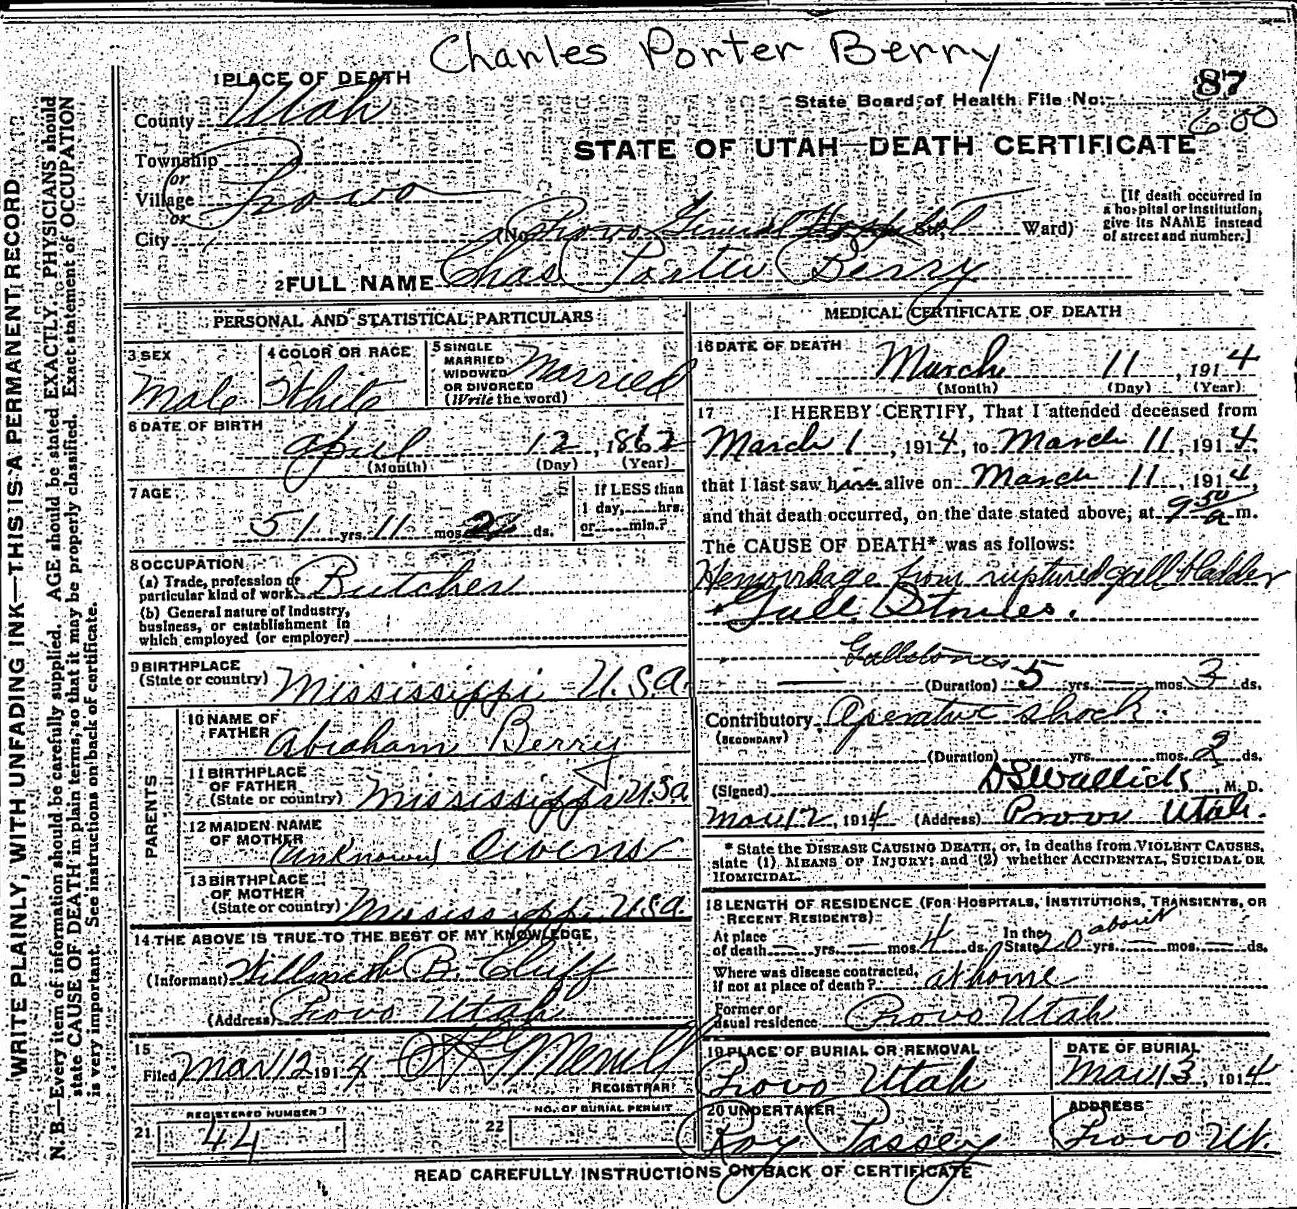 Charles Porter Berry
1 PLACE OF DEATH
87
State Board of Health File No.
600
County Utah
STATE OF UTAH—DEATH CERTIFICATE
Township
or
Village Provo
or
City (No. Provo General Hospital St., Ward)
[If death occurred in
a hospital or institution,
give its NAME instead
of street and number.]
2 FULL NAME Chas Porter Berry
WRITE PLAINLY, WITH UNFADING INK—THIS IS A PERMANENT RECORD
N. B.—Every item of information should be carefully supplied. AGE should be stated EXACTLY. PHYSICIANS should
state CAUSE OF DEATH in plain terms, so that it may be properly classified. Exact statement of OCCUPATION
is very important. See instructions on back of certificate.
PERSONAL AND STATISTICAL PARTICULARS
3 SEX
Male
4 COLOR OR RACE
White
5 SINGLE
MARRIED
WIDOWED
OR DIVORCED
(Write the word)
Married
6 DATE OF BIRTH
April 12, 1862
(Month) (Day) (Year)
7 AGE
51 yrs. 11 mos. ds.
If LESS than
1 day, hrs.
or min.?
8 OCCUPATION
(a) Trade, profession or
particular kind of work Butcher
(b) General nature of industry,
business, or establishment in
which employed (or employer)
9 BIRTHPLACE
(State or country) Mississippi U.S.A.
PARENTS
10 NAME OF
FATHER Abraham Berry
11 BIRTHPLACE
OF FATHER
(State or country) Mississippi U.S.A.
12 MAIDEN NAME
OF MOTHER (Unknown) Owens
13 BIRTHPLACE
OF MOTHER
(State or country) Mississippi U.S.A.
14 THE ABOVE IS TRUE TO THE BEST OF MY KNOWLEDGE.
(Informant) B. Cluff
(Address) Provo Utah
15
Filed Mar 12 1914 Merrill
REGISTRAR
REGISTERED NUMBER
21 44
NO. OF BURIAL PERMIT
22
MEDICAL CERTIFICATE OF DEATH
16 DATE OF DEATH
March 11, 1914
(Month) (Day) (Year)
17 I HEREBY CERTIFY, That I attended deceased from
March 1, 1914, to March 11, 1914,
that I last saw him alive on March 11, 1914,
and that death occurred, on the date stated above, at 9 50 a m.
The CAUSE OF DEATH* was as follows:
Hemorrhage from ruptured gall bladder
Gall Stones.
Gallstones
(Duration) 5 yrs. — mos. 3 ds.
Contributory Operative shock
(SECONDARY)
(Duration) yrs. mos. 2 ds.
(Signed) M. D.
Mar 12, 1914 (Address) Provo Utah.
* State the DISEASE CAUSING DEATH, or, in deaths from VIOLENT CAUSES,
state (1) MEANS OF INJURY; and (2) whether ACCIDENTAL, SUICIDAL OR
HOMICIDAL.
18 LENGTH OF RESIDENCE (FOR HOSPITALS, INSTITUTIONS, TRANSIENTS, OR
RECENT RESIDENTS)
At place
of death — yrs. — mos. 4 ds. In the State about 20 yrs. — mos. — ds.
Where was disease contracted,
if not at place of death? at home
Former or
usual residence Provo Utah
19 PLACE OF BURIAL OR REMOVAL
Provo Utah
DATE OF BURIAL
Mar 13, 1914
20 UNDERTAKER
Roy Passey
ADDRESS
Provo Ut.
READ CAREFULLY INSTRUCTIONS ON BACK OF CERTIFICATE